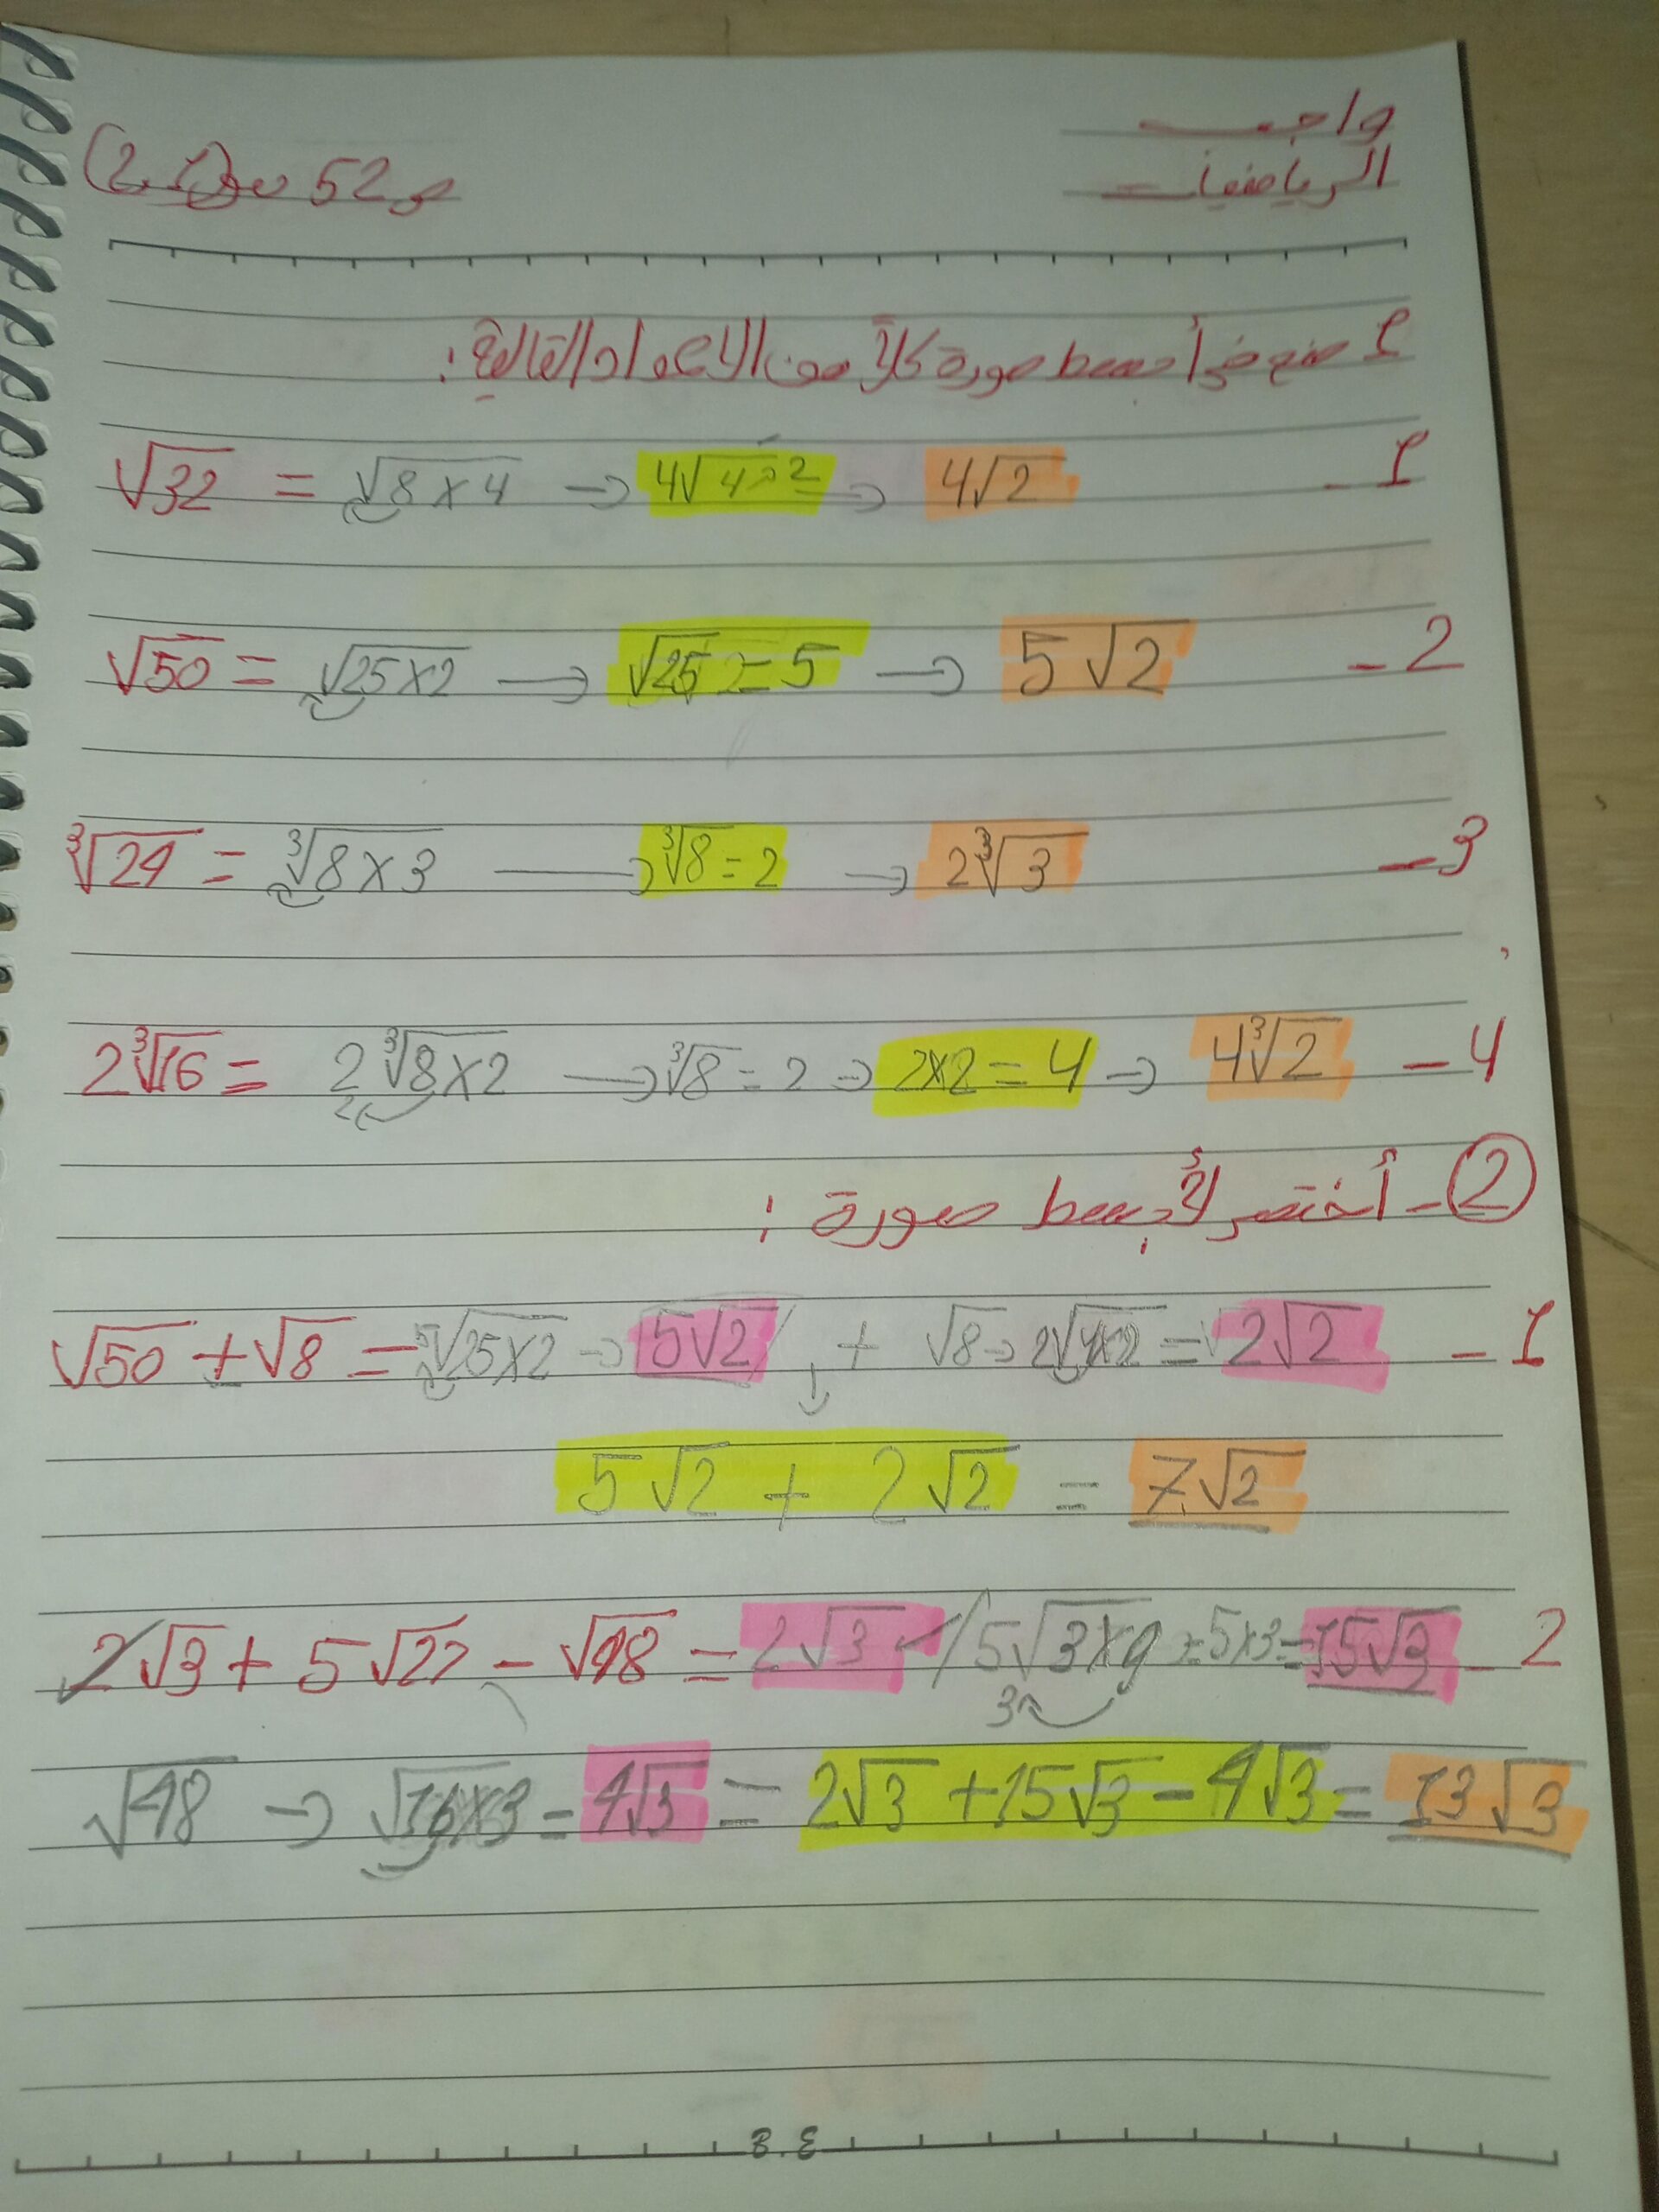 واجب
الرياضيات
ص 52 س (2,1)
1 ضع في أبسط صورة كلاً من الأعداد التالية :
√32 = √8×4 → 4√4×2 → 4√2 - 1
√50 = √25×2 → √25 = 5 → 5√2 - 2
∛24 = ∛8×3 → ∛8 = 2 → 2∛3 - 3
2∛16 = 2∛8×2 → ∛8 = 2 → 2×2 = 4 → 4∛2 - 4
2
② - أختصر لأبسط صورة :
√50 + √8 = 5√25×2 → 5√2 + √8 → 2√4×2 = 2√2 - 1
5√2 + 2√2 = 7√2
2√3 + 5√27 - √48 = 2√3 / 5√3×9 = 5×3 = 15√3 - 2
3
√48 → √16×3 = 4√3 = 2√3 + 15√3 - 4√3 = 13√3
B.E